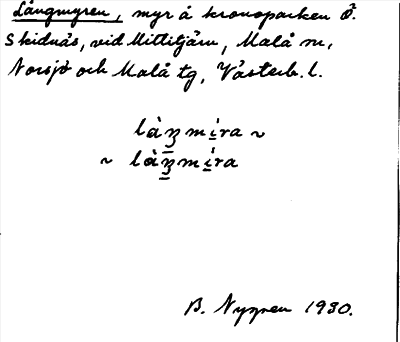 Långmyren, myr å kronoparken Ö.
Skidnäs, vid Mittitjärn, Malå sn,
Norsjö och Malå tg, Västerb. l.
làŋmi̲ra ~
~ là̲ŋmi̲ra
B. Nygren 1930.